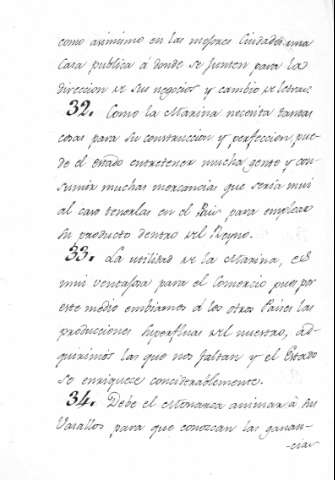 como asimismo en las mejores Ciudades una
Casa publica á donde se Junten para la
direccion de sus negocios y cambio de letras.
32. Como la Marina necesita tantas
cosas para su construccion y perfeccion, pue-
de el estado entretener mucha gente y con-
sumir muchas mercancias que seria mui
al caso tenerlas en el Pais para emplear
su producto dentro del Reyno.
33. La utilidad de la Marina, es
mui ventajosa para el Comercio pues por
este medio embiamos á los otros Paises las
producciones superfluas del nuestro, ad-
quirimos las que nos faltan y el Estado
se enriqueze considerablemente.
34. Debe el Monarca animar á sus
Vasallos para que conozcan las ganan-
-cias